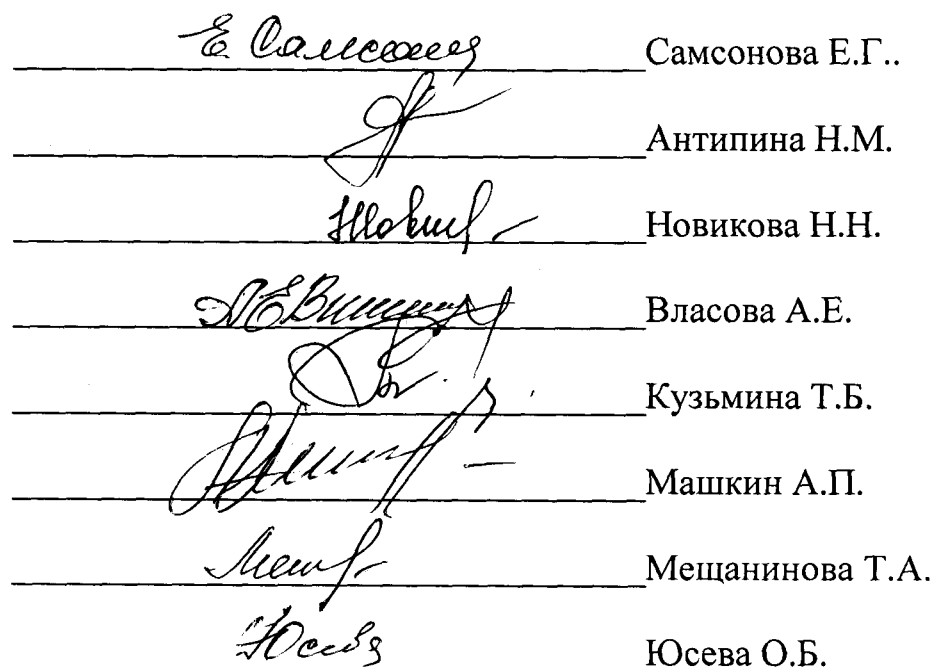 Е Самсонова Самсонова Е.Г..
Антипина Н.М.
Новикова Н.Н.
Власова А.Е.
Кузьмина Т.Б.
Машкин А.П.
Мещанинова Т.А.
Юсева Юсева О.Б.